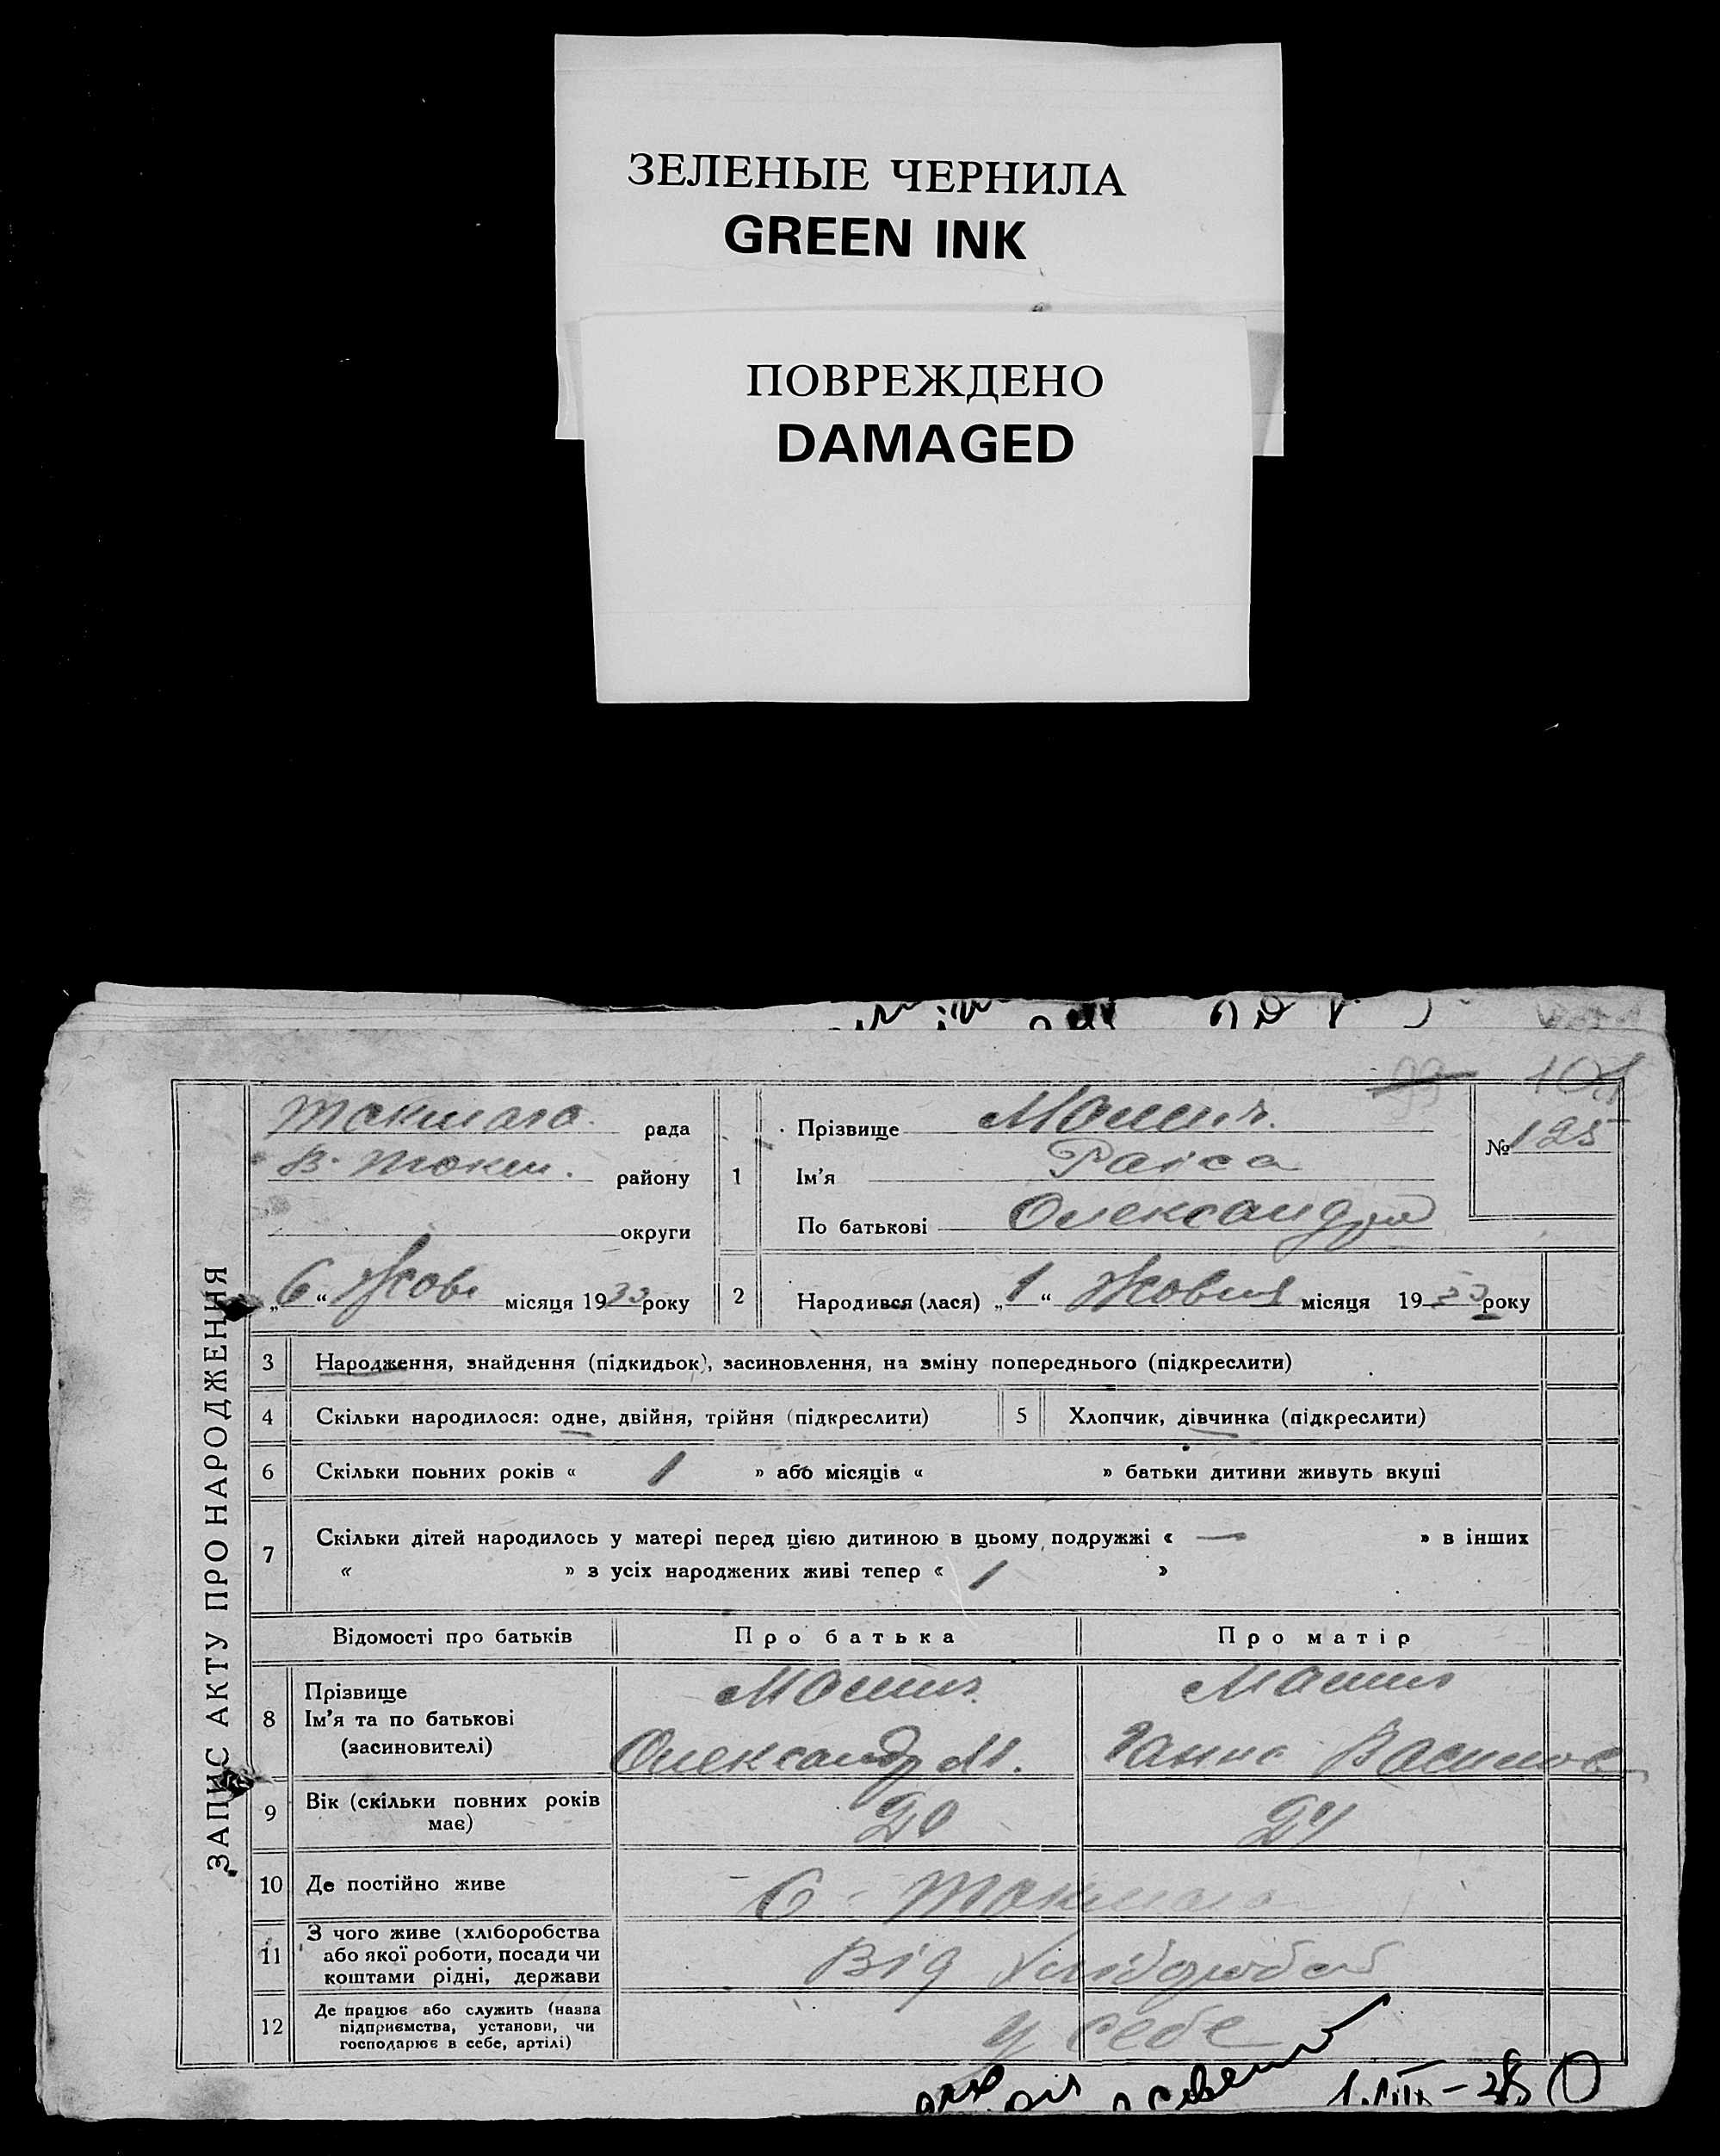 ЗЕЛЕНЫЕ ЧЕРНИЛА
GREEN INK
ПОВРЕЖДЕНО
DAMAGED
99 101
ЗАПИС АКТУ ПРО НАРОДЖЕННЯ
рада
В. Токм. району
округи
„6“ Жовт місяця 1933 року
1
Прізвище
Ім'я Раіса
По батькові Олександр
№ 125
2 Народився (лася) „1“ Жовтня місяця 1933 року
3 Народження, знайдення (підкидьок), засиновлення, на зміну попереднього (підкреслити)
4 Скільки народилося: одне, двійня, трійня (підкреслити) 5 Хлопчик, дівчинка (підкреслити)
6 Скільки повних років « 1 » або місяців « » батьки дитини живуть вкупі
7 Скільки дітей народилось у матері перед цією дитиною в цьому подружжі « — » в інших
« » з усіх народжених живі тепер « 1 »
Відомості про батьків Про батька Про матір
8 Прізвище
Ім'я та по батькові
(засиновителі)
Олександр М. Ганна Василів
9 Вік (скільки повних років
має)
20 24
10 Де постійно живе С.
11 З чого живе (хліборобства
або якої роботи, посади чи
коштами рідні, держави
Від
12 Де працює або служить (назва
підприємства, установи, чи
господарює в себе, артілі)
У себе